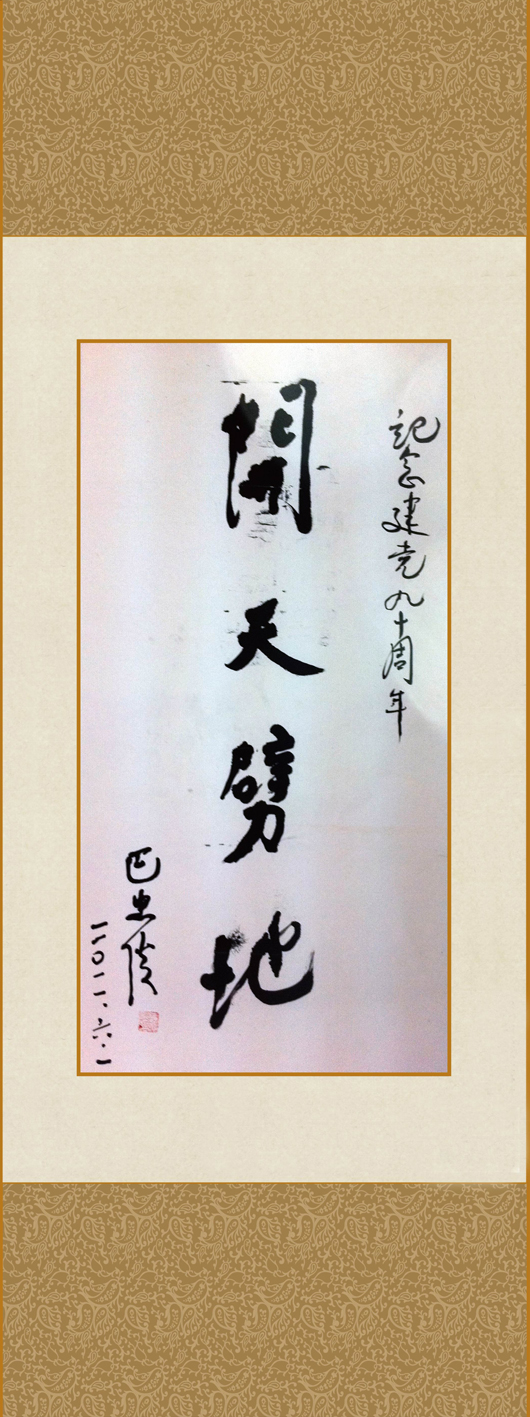 記念建党九十周年
開天劈地
巴忠倓
二〇一一、六·一